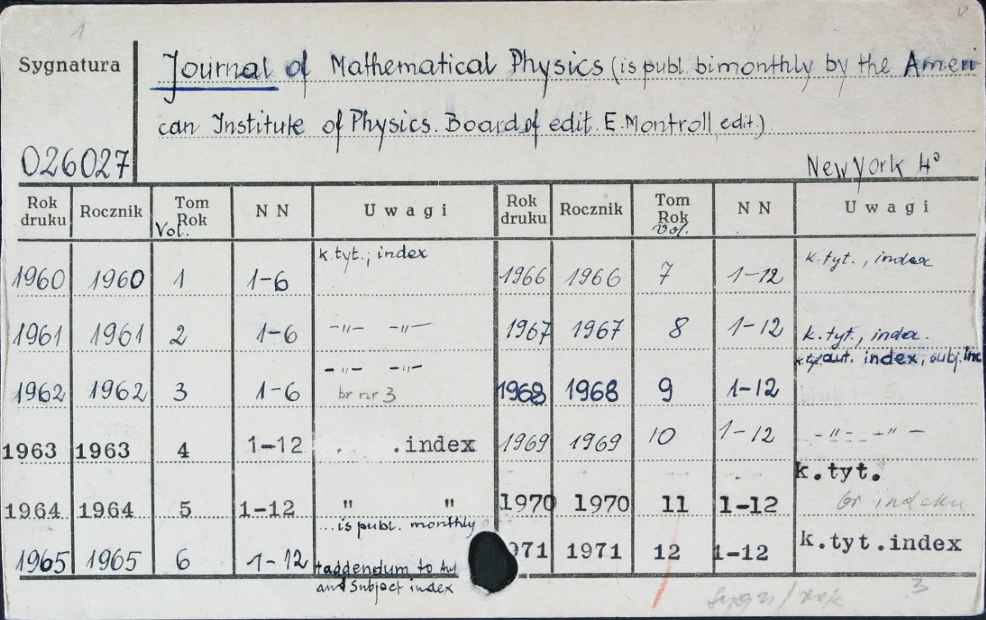 1
Sygnatura
Journal of Mathematical Physics (is publ. bimonthly by the Ameri
can Institute of Physics. Board of edit. E. Montroll, edit.)
026027
New York 4°
Rok druku Rocznik Tom Rok Vol. N N Uwagi Rok druku Rocznik Tom Rok Vol. N N Uwagi
1960 1960 1 1-6 k.tyt.; index 1966 1966 7 1-12 k.tyt., index
1961 1961 2 1-6 -"- -"- 1967 1967 8 1-12 k.tyt., index.
1962 1962 3 1-6 -"- -"- br nr 3 1968 1968 9 1-12 aut. index, subj.
1963 1963 4 1-12 . .index 1969 1969 10 1-12 -"- -"-
1964 1964 5 1-12 " " 1970 1970 11 1-12 k.tyt. br indeksu
...is publ. monthly
1965 1965 6 1-12 +addendum to 971 1971 12 1-12 k.tyt.index
and Subject index
3